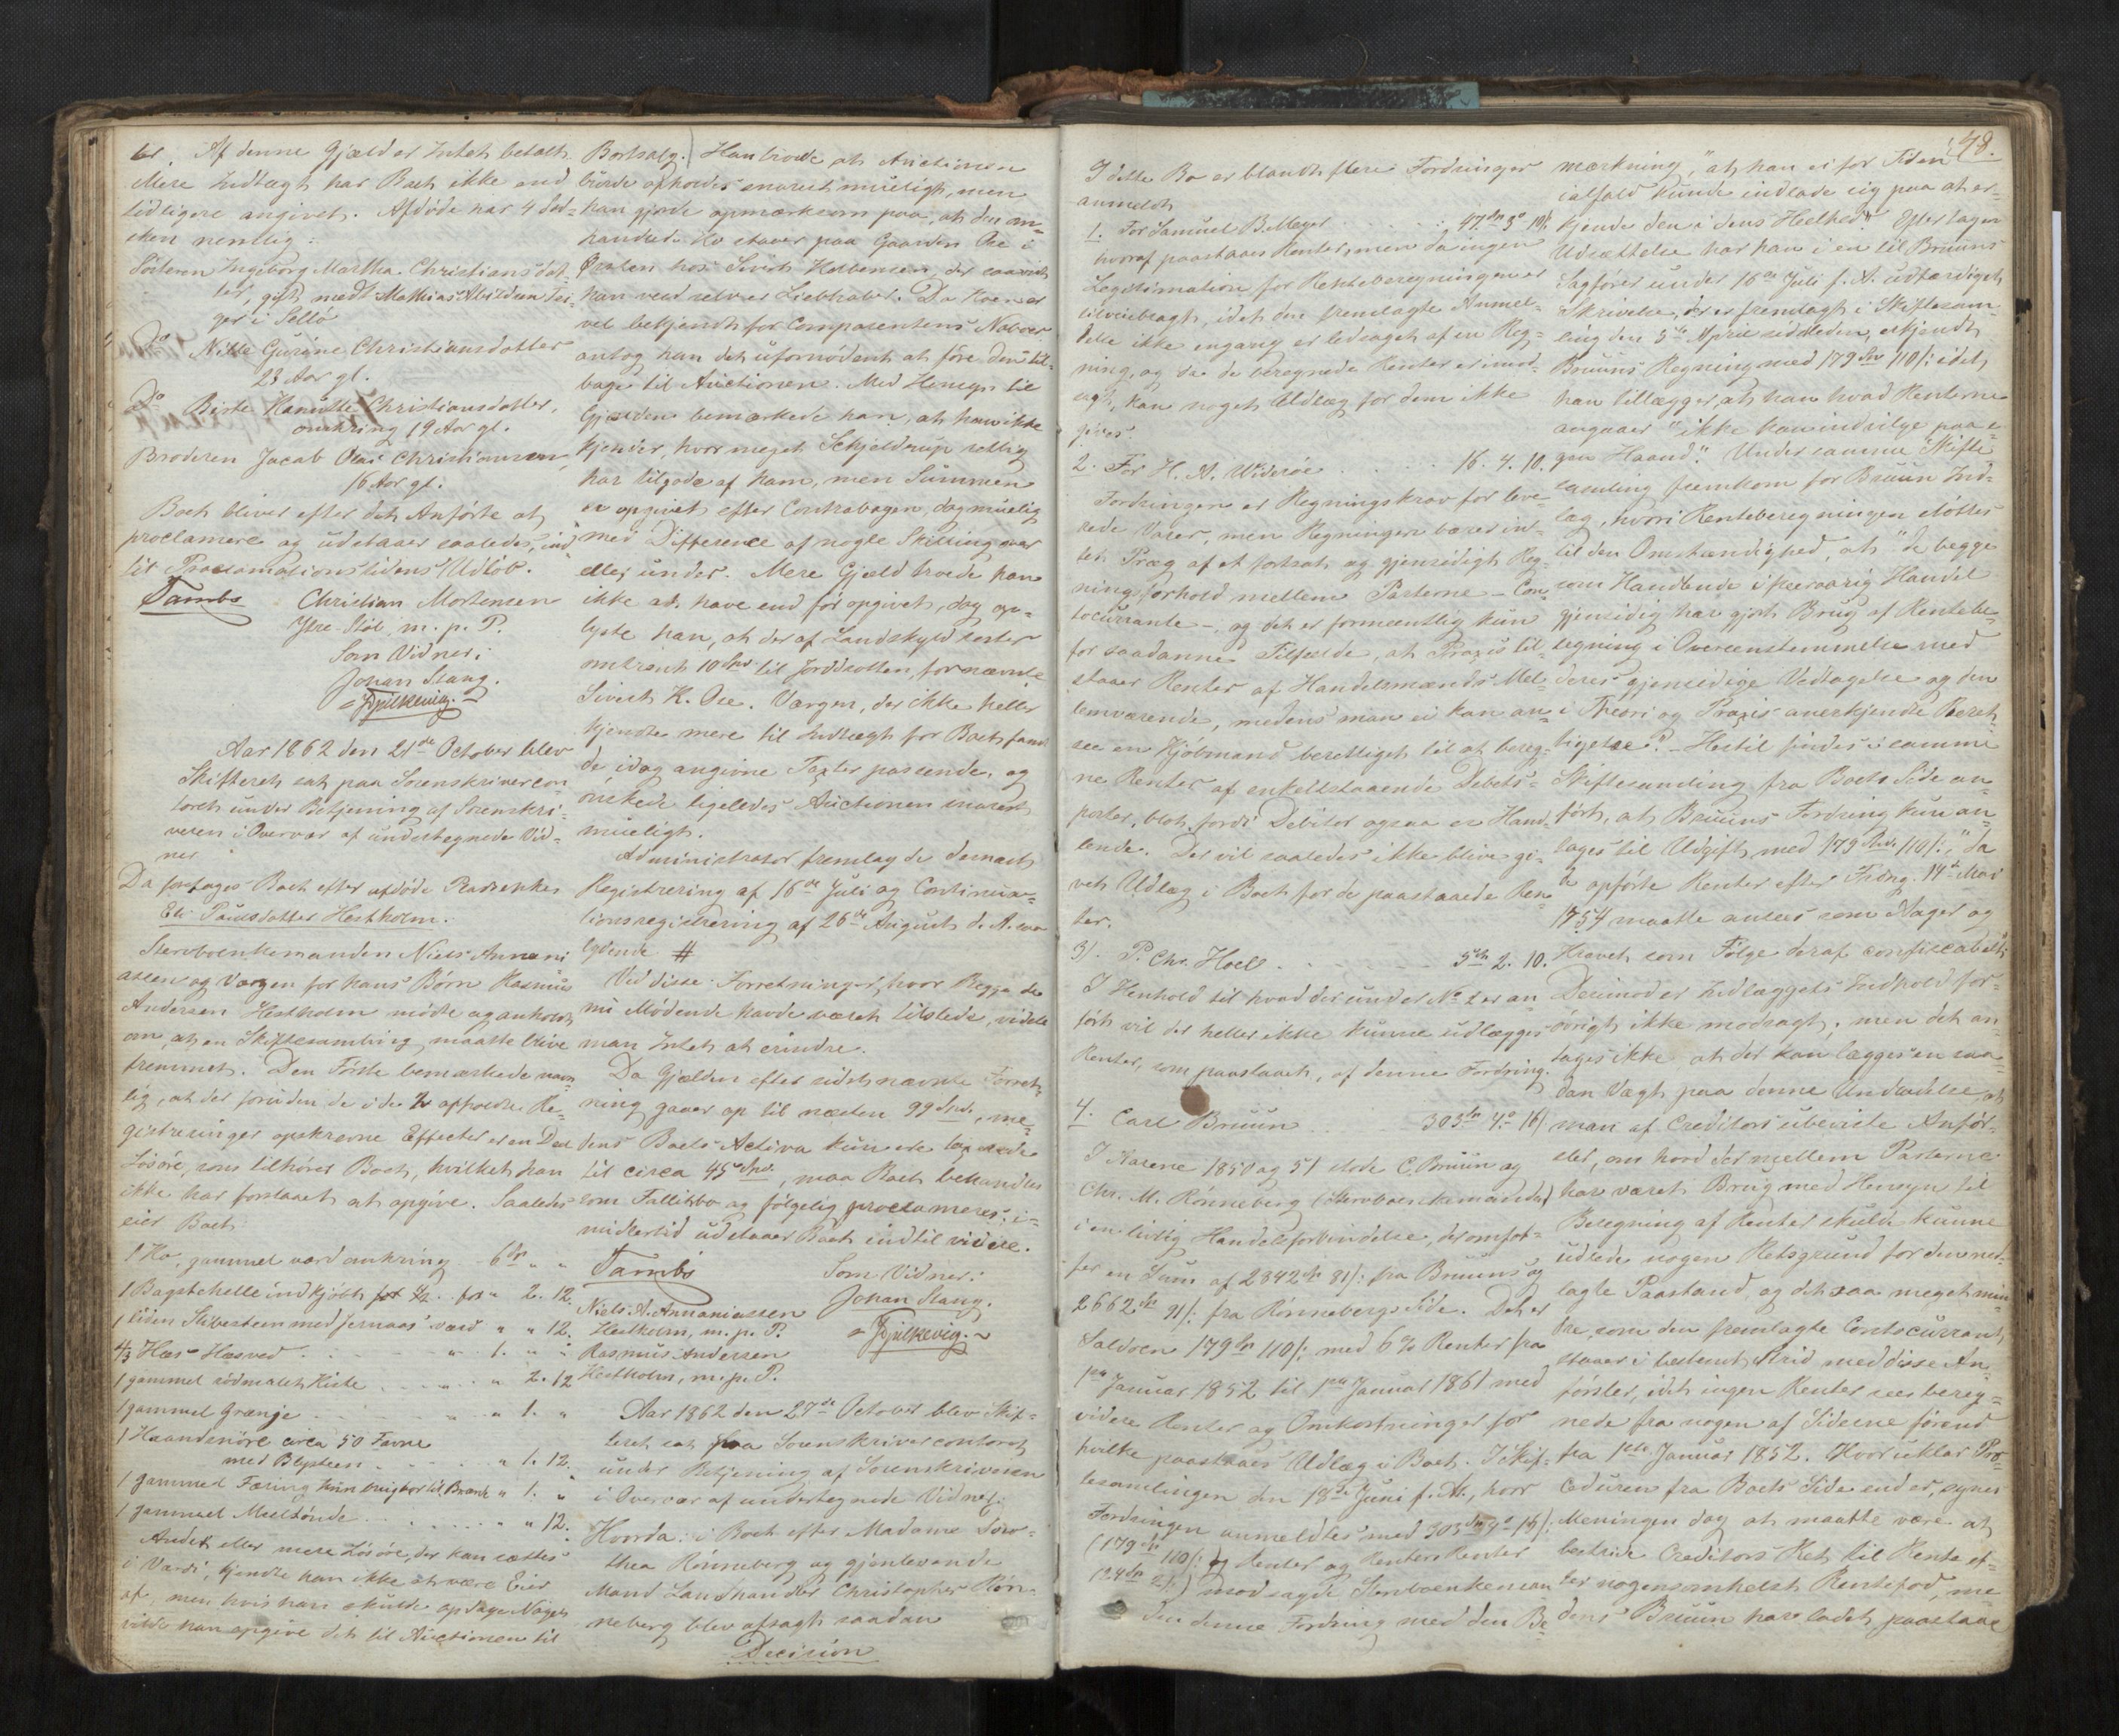 tet. Af denne Gjæld er Intet betalt.
Mere Indtægt har Boet ikke end
tidligere angivet. Afdøde har 4 Sød-
sken nemlig:
Søsteren Ingeborg Martha Christiansdat-
ter, gift med Mathias Abildsen Tei-
ger i Sellö
Do Nille Gurine Christiansdatter
23 Aar gl.
Do Birte Hanutte Christiansdotter,
omkring 19 Aar gl.
Broderen Jacob Olai Christiansen,
16 Aar gl.
Boet bliver efter det Anførte at
proclamere og udstaaer saaledes, ind
til Proclamationstidens Udløb.
Tambs Christian Mortensen
Ytre-Stöl, m. p. P.
Som Vidner:
Johan Stang.
Fylkevig.
Aar 1862 den 21de October blev
Skifteret sat paa Sorenskrivercon
toret under Betjening af Sorenskri-
veren i Overvær af undertegnede Vid-
ner
Da foretages Boet efter afdöde Radsenkes
Eli Paulsdatter Hestholm.
Stervboenkemanden Niels Annani
assen og Værgen for hans Børn Rasmus
Andersen Hestholm mödte og anholdt
om, at en Skiftesamling maatte blive
fremmet. Den Förste bemærkede navn
lig, at der foruden de i de to afholdte Re-
gistreringer opskrevne Effecter er en Deel
Lösöre, som tilhörer Boet, hvilket han
ikke har forstaaet at opgive. Saaledes
eier Boet
1 Ko, gammel værd omkring 6 Sp " "
1 Bagstehelle indkjøbt for " 2. 12.
1 liden Slibesteen med Jernaas værd " " 12.
4/3 Hæs Hæsved " 1. "
1 gammel rödmalet Kiste " 2. 12
1 gammel Grænje " 1. "
1 Haandsnöre circa 50 Favne
med Blysteen " 1. 12.
1 gammel Færing kun brugbar til Brænde " 1. "
1 gammel Meeltönde " " 12.
Andet eller mere Lösöre, der kan sættes
i Værdi, kjendte han ikke at være Eier
af, men hvis han skulde opdage Noget
vilde han opgive det til Auctionen til
Bortsalg. Han troede at Auctionen
burde afholdes snarest mueligt, men
han gjorde opmærksom paa, at den om-
handlede Ko staaer paa Gaarden Ose i
Örsten hos Sivert Helbensen, der saavidt
han veed selv er Liebhaber. Da Koen er
vel bekjendt for Comparentens Naboer
antog han det ufornödent at före den til-
bage til Auctionen. Med Hensyn til
Gjælden bemærkede han, at han ikke
kjender, hvor meget Schjeldrup rettig
har tilgode af ham, men Summen
er opgivet efter Contrabogen, dog muelig
med Difference af nogle Skilling over
eller under. Mere Gjæld troede han
ikke at have end før opgivet, dog op-
lyste han, at der af Landskyld rester
omtrent 10 Spd til Jorddrotten, fornævnte
Sivert K. Ose. Værgen, der ikke heller
kjendte mere til Indtægt for Boet fandt
de idag angivne Taxter passende, og
önskede ligeledes Auctionen snarest
mueligt.
Administrator fremlagde dernæst
Registrering af 16de Juli og Continua-
tionsregistrering af 26de August d. A. saa
lydende #
Ved disse Forretninger, hvor Begge de
nu Mødende havde været tilstede, vidste
man Intet at erindre.
Da Gjælden efter sidstnævnte Forret-
ning gaaer op til næsten 99 Spd., me-
dens Boets Activa kun ere taxerede
til circa 45 Spd., maa Boet behandles
som Fallitbo og fölgelig proclameres; i-
midlertid udstaaer Boet indtil videre.
Tambs Som Vidner:
Niels A. Annaniassen Johan Stang.
Hestholm, m. p. P. Fylkevig.
Rasmus Andersen
Hestholm, m. p. P.
Aar 1862 den 27de October blev Skif-
teret sat paa Sorenskrivercontoret
under Betjening af Sorenskriveren
i Overvær af undertegnede Vidner.
Hvorda: i Boet efter Madame Doro-
thea Rönneberg og gjenlevende
Mand Landhandler Christopher Rön-
neberg blev afsagt saadan
Decision
48.
I dette Bo er blandt flere Fordringer
anmeldt
1. For Samuel B. Meyer 47 Sp 3 o 19/:
hvoraf paastaaes Renter, men da ingen
Legitimation for Renteberegningen er
tilveiebragt, idet den fremlagte Anmel-
delse ikke engang er ledsaget af en Reg-
ning, og da de beregnede Renter er imod-
sagt, kan noget Udlæg for dem ikke
gives.
2. For H. N. Wideröe 16. 4. 10.
Fordringen er Regningskrav for leve-
rede Varer, men Regningen bærer in-
tet Præg af et fortsat og gjensidigt Reg-
ningsforhold mellem Parterne - Con-
tocurrante -, og det er formeentlig kun
for saadanne Tilfælde, at Praxis til-
staaer Renter af Handelsmænds Mel-
lemværende, medens man ei kan an-
see en Kjöbmand berettiget til at bereg-
ne Renter af enkeltstaaende Debets-
poster, blot fordi Debitor ogsaa er Hand-
lende. Der vil saaledes ikke blive gi-
vet Udlæg i Boet for de paastaaede Ren-
ter.
3). P. Chr. Hoel 5 Sp 2. 10.
I Henhold til hvad der under No 2 er an
fört vil der heller ikke kunne udlægges
Renter, som paastaaet, af denne Fordring.
4. Carl Bruun 303 Sp 4 o 16/
I Aarene 1850 og 51 stode C. Bruun og
Chr. M. Rönneberg (Stervboenkemanden)
i en livlig Handelsforbindelse, der omfat-
ter en Sum af 2842 Sp 81/: fra Bruuns og
2662 Sp 91/: fra Rönnebergs Side. Det er
Saldoen 179 Sp 110/: med 6 % Renter fra
1ste Januar 1852 til 1ste Januar 1861 med
videre Renter og Omkostninger for
hvilke paastaaes Udlæg i Boet. I Skif-
tesamlingen den 18de Juni f. A., hvor
Fordringen anmeldtes med 303 Sp 4 o 16/:
(179 Sp 110/: og Renter og Renters Renter
124 Sp 2/:) modsagde Stervboenkeman
den denne Fordring med den Be-
mærkning, "at han ei for Tiden
ialfald kunde indlade sig paa at er-
kjende den i dens Heelhed". Efter tagen
Udsættelse har han i en til Bruuns
Sagförer under 16de Juli f. A. udfærdiget
Skrivelse, der er fremlagt i Skiftesam-
ling den 5te April sidstleden, erkjendt
Bruuns Regning med 179 Spd 110/: idet
han tillægger, at han hvad Renterne
angaaer "ikke kan indvilge paa e-
gen Haand." Under samme Skifte
samling fremkom for Bruun Ind-
læg, hvori Renteberegningen støttes
til den Omstændighed, at "de begge
som Handlende i fleeraarig Handel
gjensidig har gjort Brug af Rentebe-
regning i Overeenstemmelse med
deres gjensidige Vedtagelse og den
i Theori og Praxis anerkjendte Beret-
tigelse". - Hertil findes i samme
Skiftesamling fra Boets Side an-
fört, at Bruuns Fordring kun an-
tages til Udgift med 179 Spd 110/:, "da
de opförte Renter efter Frdng. 14de Mai
1754 maatte ansees som Aager og
Kravet som Fölge deraf confiscabelt".
Derimod er Indlæggets Indhold for-
övrigt ikke modsagt; men det an-
tages ikke at der kan lægges en saa-
dan Vægt paa denne Undladelse, at
man af Creditors ubeviste Anför-
sler, om hvad der mellem Parterne
har været Brug med Hensyn til
Beregning af Renter skulde kunne
udlede nogen Retsgrund for den ned-
lagte Paastand, og det saa meget min-
dre, som den fremlagte Contocurrant
staaer i bestemt Strid med disse An-
førsler, idet ingen Renter sees bereg-
nede fra nogen af Siderne förend
fra 1ste Januar 1852. Hvor uklar Pro-
ceduren fra Boets Side end er, synes
Meningen dog at maatte være at
bestride Creditors Ret til Rente ef-
ter nogensomhelst Rentefod, me-
dens Bruun har ladet paastaae